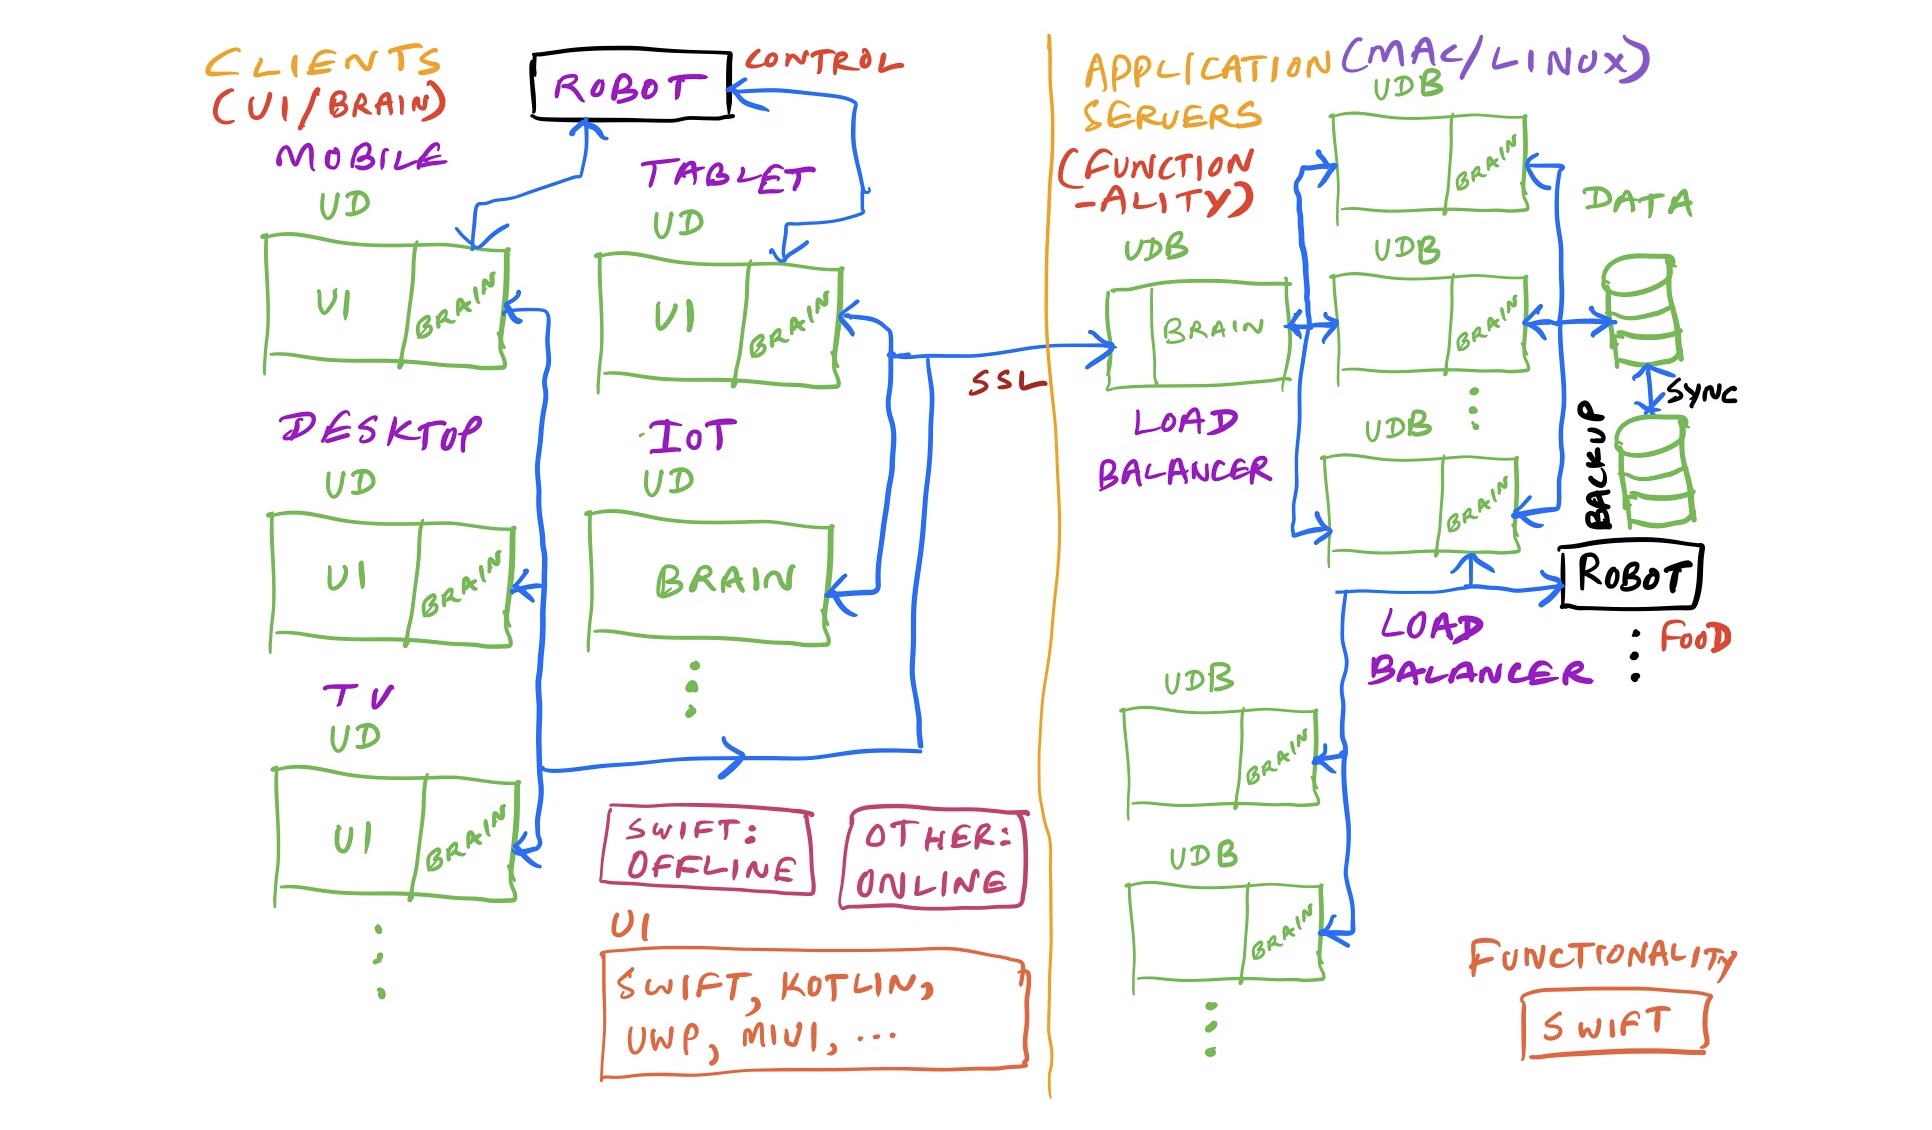 CLIENTS
(UI/BRAIN)
ROBOT
CONTROL
MOBILE
UD
UI
BRAIN
TABLET
UD
UI
BRAIN
DESKTOP
UD
UI
BRAIN
IOT
UD
BRAIN
TV
UD
UI
BRAIN
SWIFT:
OFFLINE
OTHER:
ONLINE
UI
SWIFT, KOTLIN,
UWP, MIUI, ...
SSL
APPLICATION (MAC/LINUX)
SERVERS
(FUNCTION
-ALITY)
UDB
BRAIN
LOAD
BALANCER
UDB
BRAIN
UDB
BRAIN
UDB
BRAIN
DATA
SYNC
BACKUP
ROBOT
FOOD
LOAD
BALANCER
UDB
BRAIN
UDB
BRAIN
FUNCTIONALITY
SWIFT